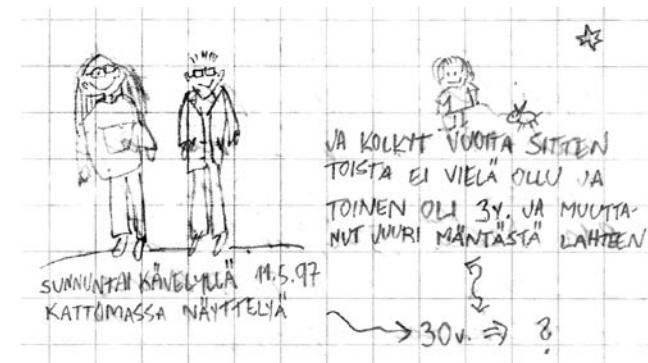 SUNNUNTAI KÄVELYLLÄ 11.5.97
KATTOMASSA NÄYTTELYÄ
JA KOLKYT VUOTTA SITTEN
TOISTA EI VIELÄ OLLU JA
TOINEN OLI 3v. JA MUUTTA-
NUT JUURI MÄNTÄSTÄ LAHTEEN
30v. ⇒ ?